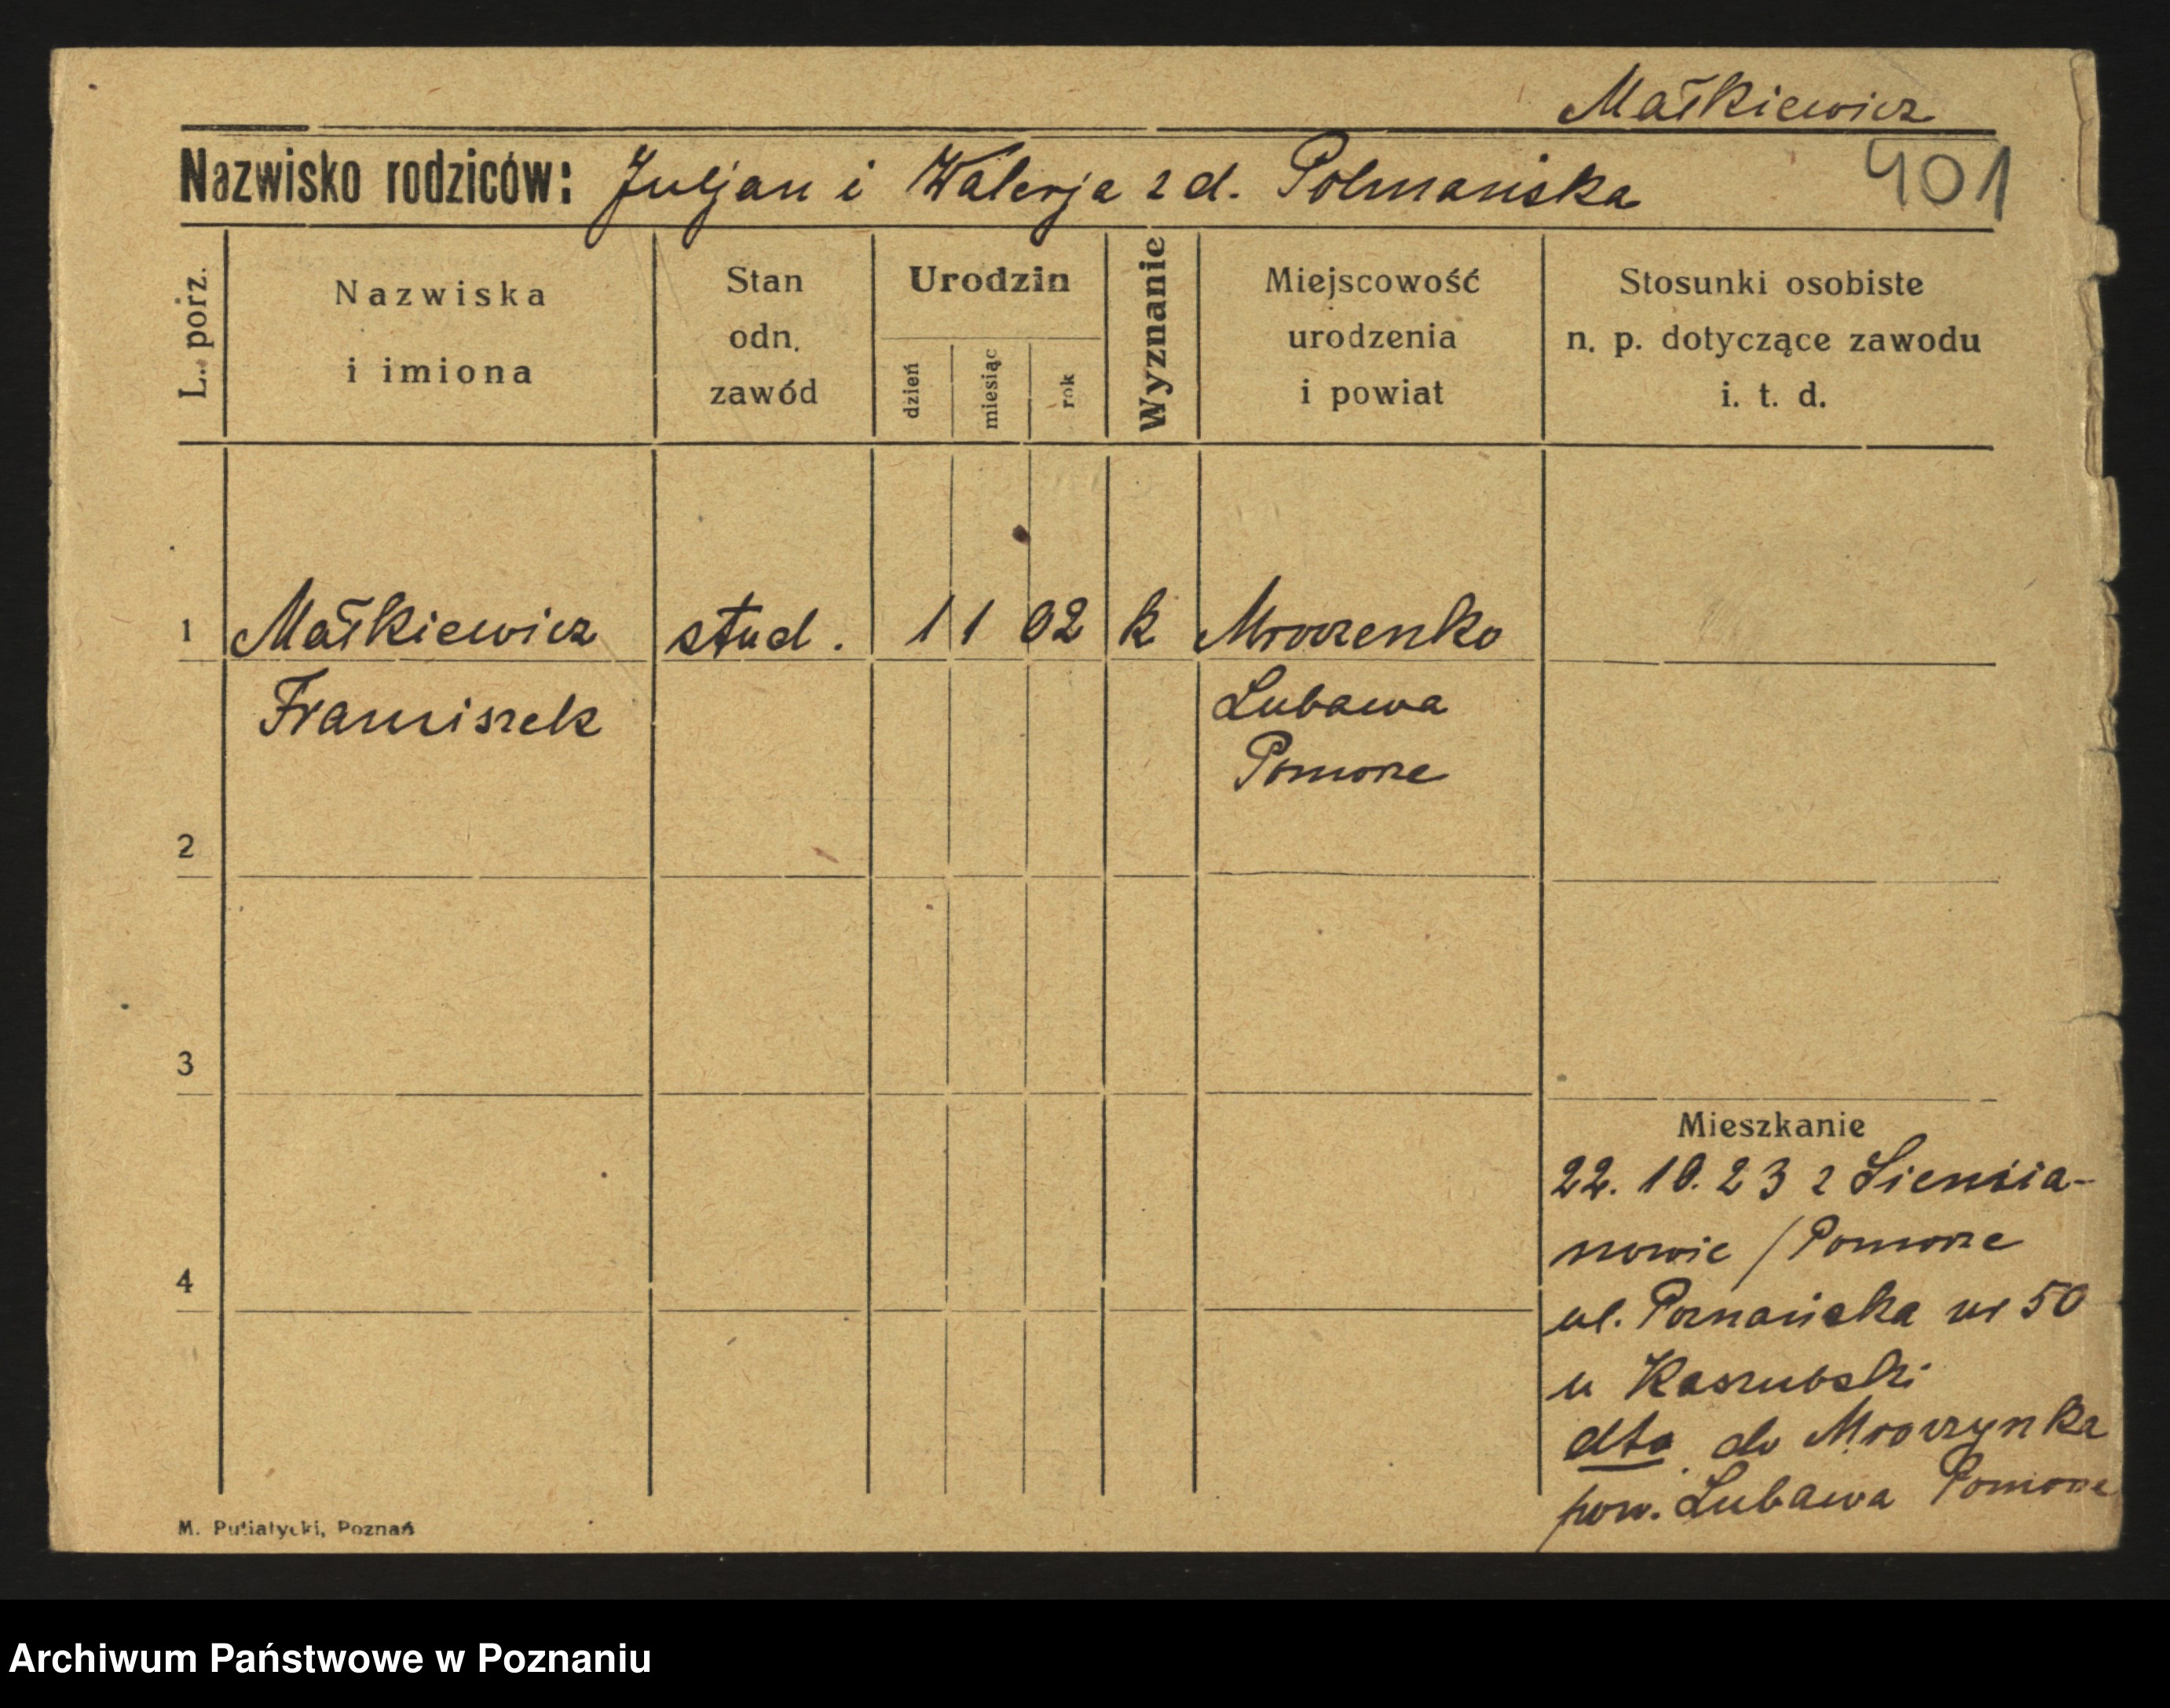 Małkiewicz
Nazwisko rodziców: Juljan i Walerja z d. Polmańska
401
L. porz.
Nazwiska
i imiona
Stan
odn.
zawód
Urodzin
dzień
miesiąc
rok
Wyznanie
Miejscowość
urodzenia
i powiat
Stosunki osobiste
n. p. dotyczące zawodu
i. t. d.
1 Małkiewicz stud. 1 1 02 k Mroczenko
Franciszek Lubawa
Pomorze
2
3
4
Mieszkanie
22. 10. 23 z
nowie / Pomorze
ul. Poznańska nr 50
u Kaszubski
dto do Mroczynka
pow. Lubawa Pomorze
M. Putiatycki, Poznań
Archiwum Państwowe w Poznaniu